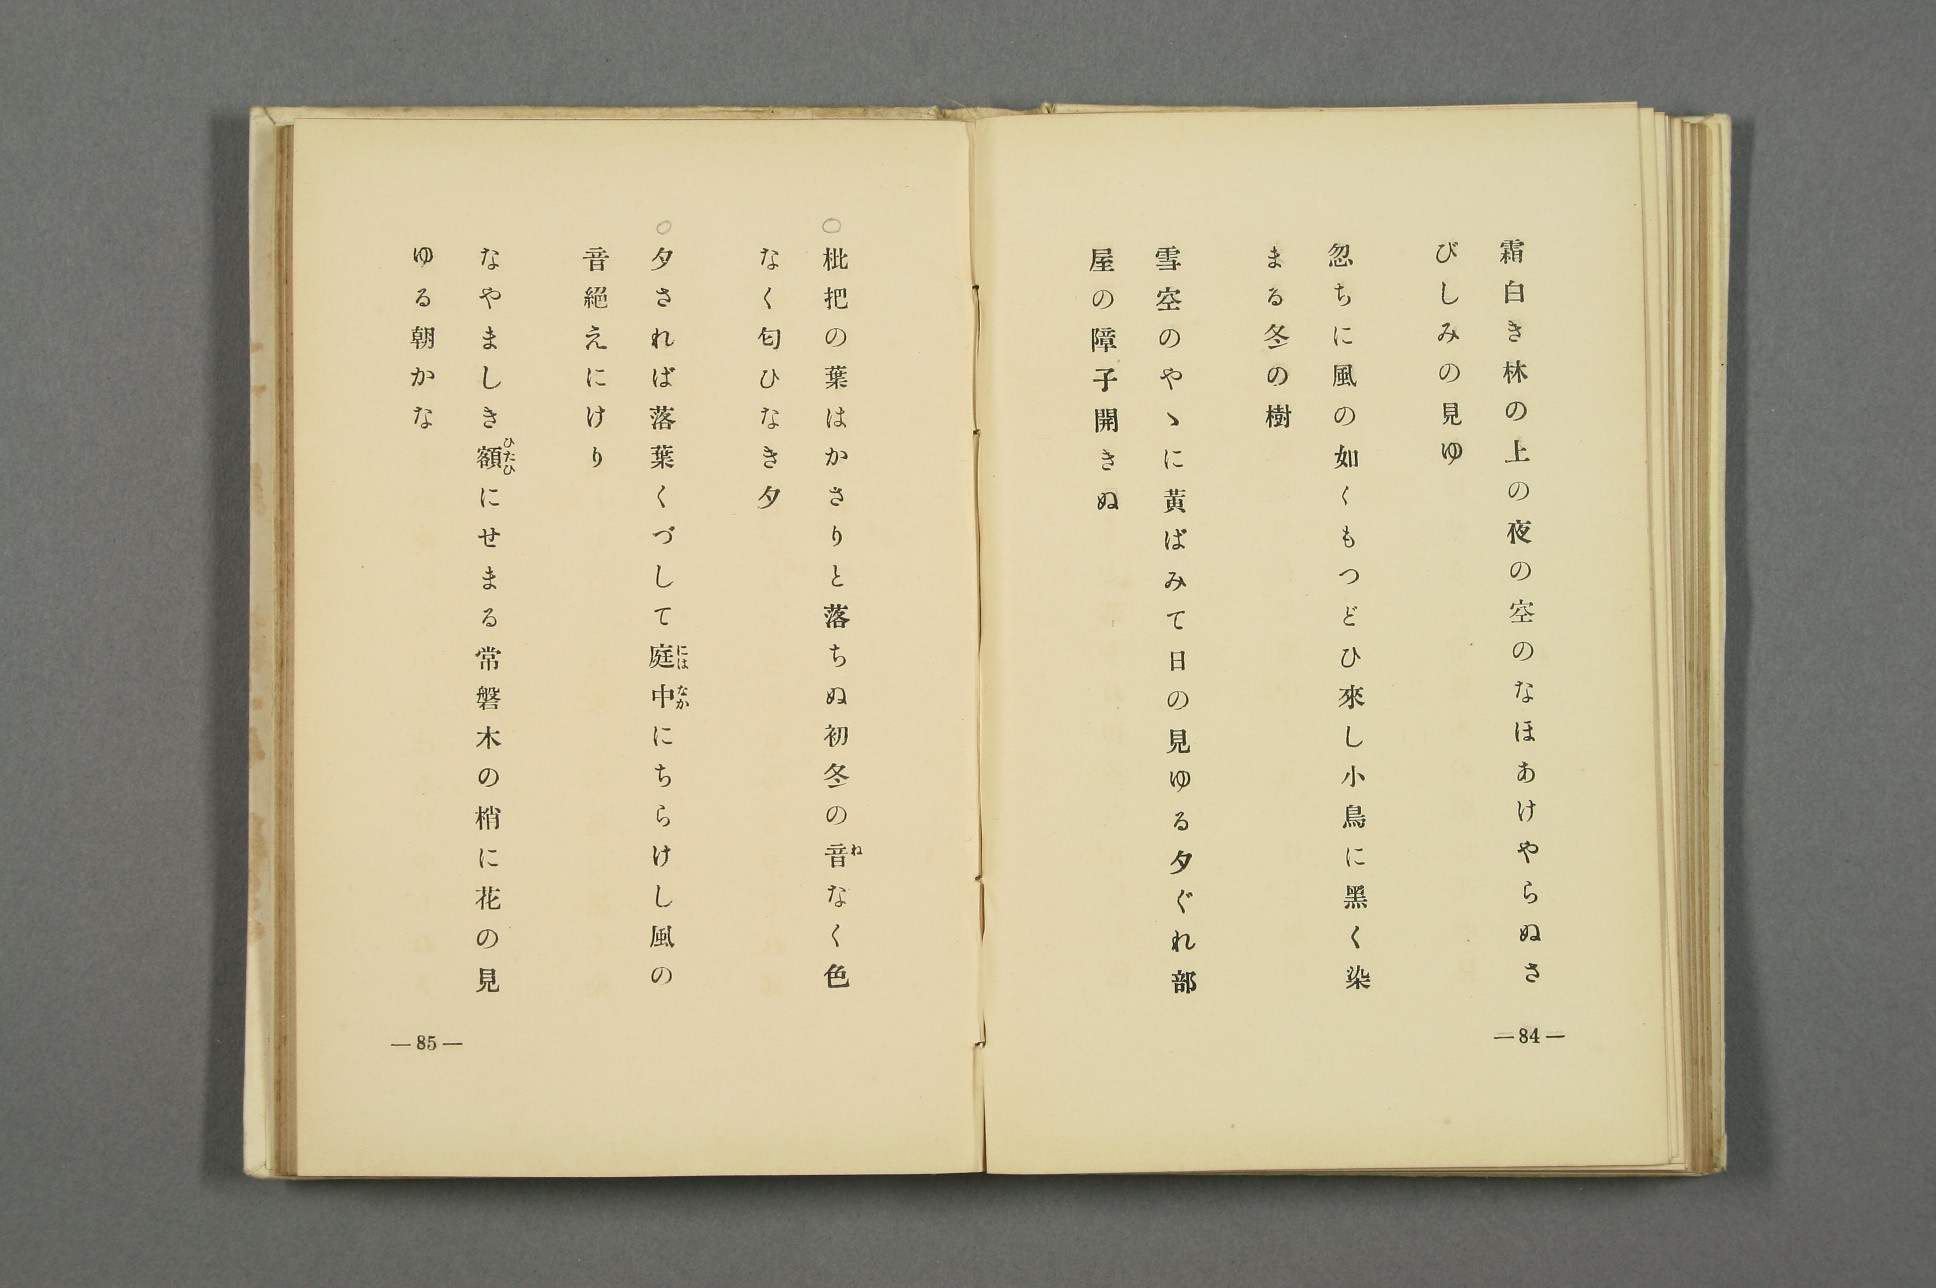 霜白き林の上の夜の空のなほあけやらぬさ
びしみの見ゆ
忽ちに風の如くもつどひ來し小鳥に黑く染
まる冬の樹
雪空のやゝに黃ばみて日の見ゆる夕ぐれ部
屋の障子開きぬ
—84—
○枇把の葉はかさりと落ちぬ初冬の音ねなく色
なく匂ひなき夕
○夕されば落葉くづして庭には中なかにちらけし風の
音絕えにけり
なやましき額ひたひにせまる常磐木の梢に花の見
ゆる朝かな
—85—